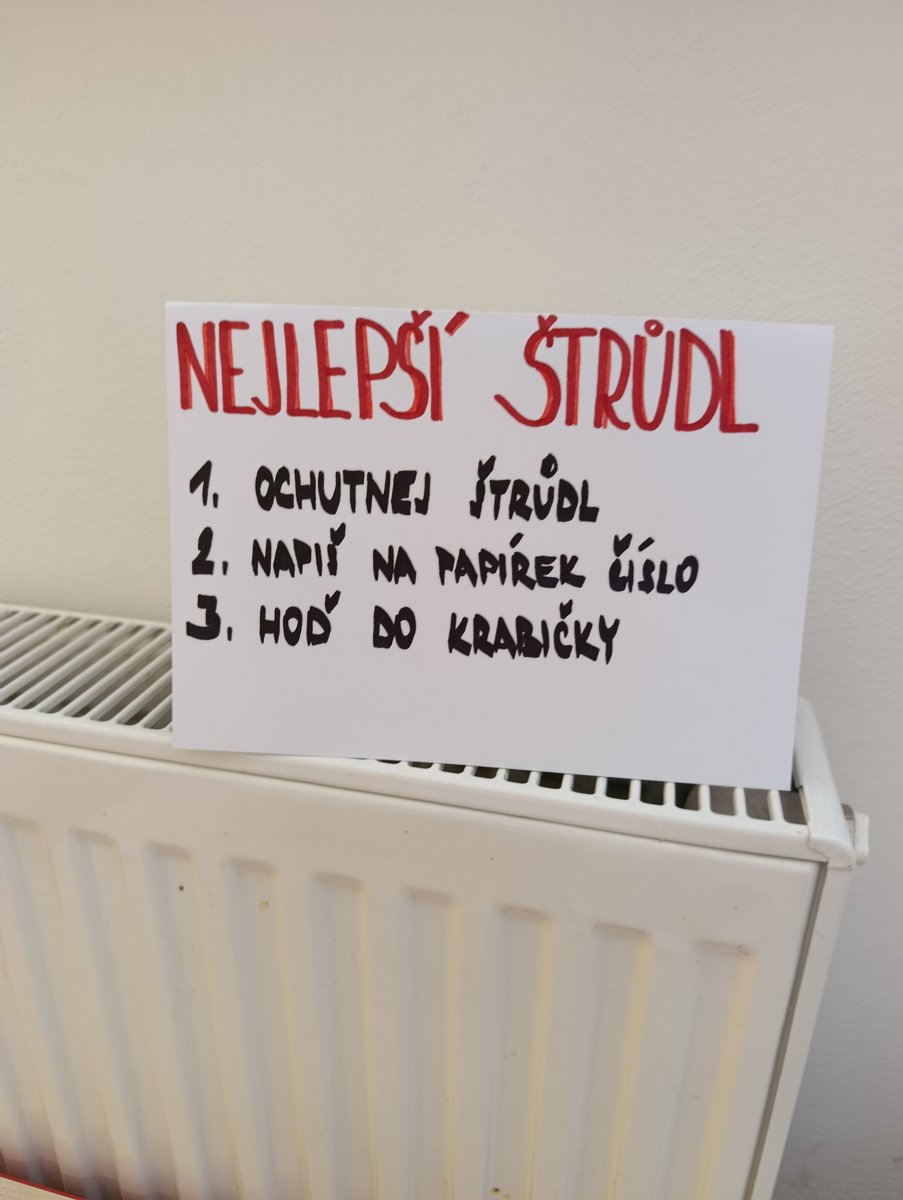 NEJLEPŠÍ ŠTRŮDL
1. OCHUTNEJ ŠTRŮDL
2. NAPIŠ NA PAPÍREK ČÍSLO
3. HOĎ DO KRABIČKY